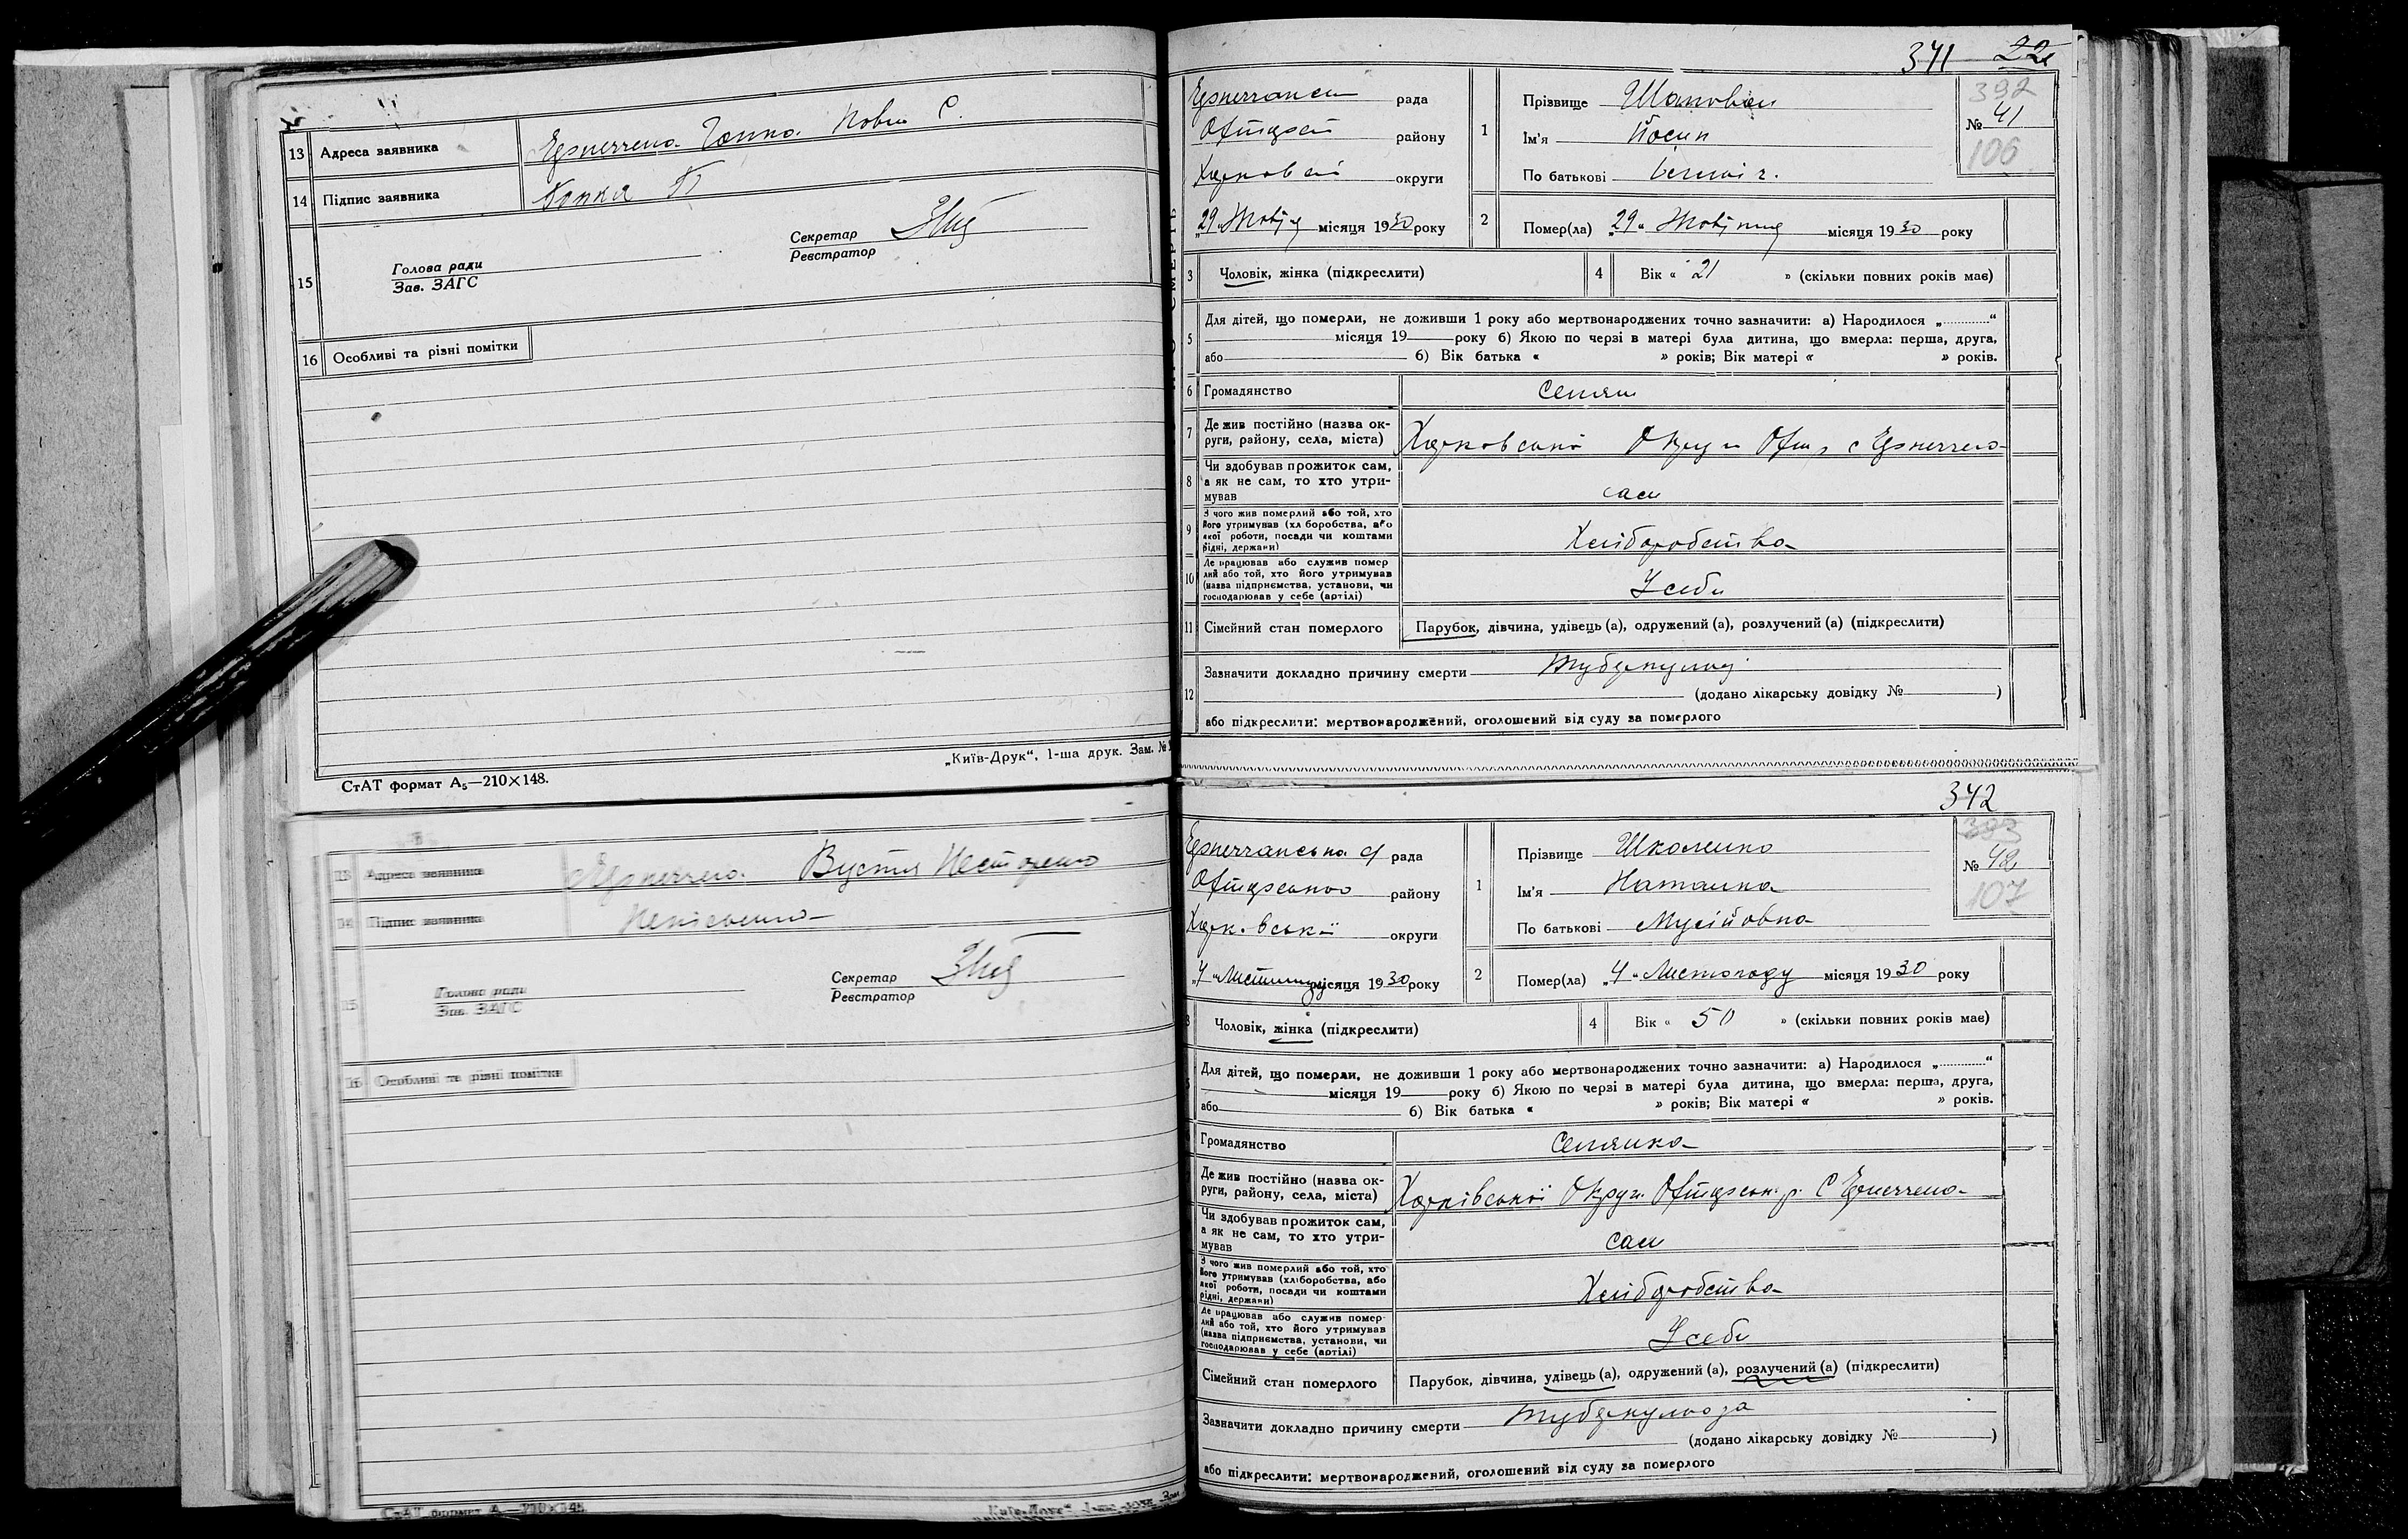 13 Адреса заявника
14 Підпис заявника
15 Голова ради
Зав. ЗАГС
Секретар
Реєстратор
16 Особливі та різні помітки
„Київ-Друк“, 1-ша друк. Зам. №
СтАТ формат А5—210×148.
13 Адреса заявника Вустя Нестеренко
14 Підпис заявника
15 Голова ради
Зав. ЗАГС
Секретар
Реєстратор
16 Особливі та різні помітки
СтАТ формат А 210×148
371 22
рада
району
округи
„29“ місяця 1930 року
1 Прізвище Шаповал
Ім'я Йосип
По батькові
392
№ 41
106
2 Помер(ла) „29“ місяця 1930 року
3 Чоловік, жінка (підкреслити)
4 Вік « 21 » (скільки повних років має)
5 Для дітей, що померли, не доживши 1 року або мертвонароджених точно зазначити: а) Народилося „............“
місяця 19 року б) Якою по черзі в матері була дитина, що вмерла: перша, друга,
або б) Вік батька « » років; Вік матері « » років.
6 Громадянство Селян
7 Де жив постійно (назва ок-
руги, району, села, міста)
8 Чи здобував прожиток сам,
а як не сам, то хто утри-
мував
сам
9 З чого жив померлий або той, хто
його утримував (хліборобства, або
якої роботи, посади чи коштами
рідні, держави)
Хліборобства
10 Де працював або служив помер
лий або той, хто його утримував
(назва підприємства, установи, чи
господарював у себе (артілі)
У себе
11 Сімейний стан померлого Парубок, дівчина, удівець (а), одружений (а), розлучений (а) (підкреслити)
12 Зазначити докладно причину смерти туберкульоз
(додано лікарську довідку № )
або підкреслити: мертвонароджений, оголошений від суду за померлого
342
рада
району
округи
„4“ місяця 1930 року
1 Прізвище Школенко
Ім'я Наталка
По батькові Мусійовна
393
№ 42
107
2 Помер(ла) „4“ Листопаду місяця 1930 року
3 Чоловік, жінка (підкреслити)
4 Вік « 50 » (скільки повних років має)
5 Для дітей, що померли, не доживши 1 року або мертвонароджених точно зазначити: а) Народилося „............“
місяця 19 року б) Якою по черзі в матері була дитина, що вмерла: перша, друга,
або б) Вік батька « » років; Вік матері « » років.
Громадянство Селянка
Де жив постійно (назва ок-
руги, району, села, міста)
Харківської Округи
Чи здобував прожиток сам,
а як не сам, то хто утри-
мував
сам
З чого жив померлий або той, хто
його утримував (хліборобства, або
якої роботи, посади чи коштами
рідні, держави)
Хліборобства
Де працював або служив помер-
лий або той, хто його утримував
(назва підприємства, установи, чи
господарював у себе (артілі)
У себе
Сімейний стан померлого Парубок, дівчина, удівець (а), одружений (а), розлучений (а) (підкреслити)
Зазначити докладно причину смерти туберкульоза
(додано лікарську довідку № )
або підкреслити: мертвонароджений, оголошений від суду за померлого